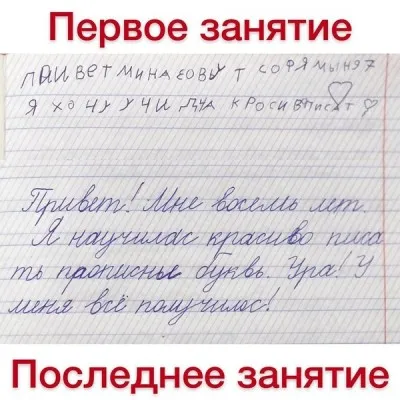 Первое занятие
ПАИВЕТ МИНАЕОВУТ СОФЯ МЫНЯ 7
Я ХОЧУ УЧИ ДЦА КРОСИВ ПИСАТ
Привет! Мне восемь лет.
Я научилас красиво писа
ть прописные буквы. Ура! У
меня всё получилос!
Последнее занятие